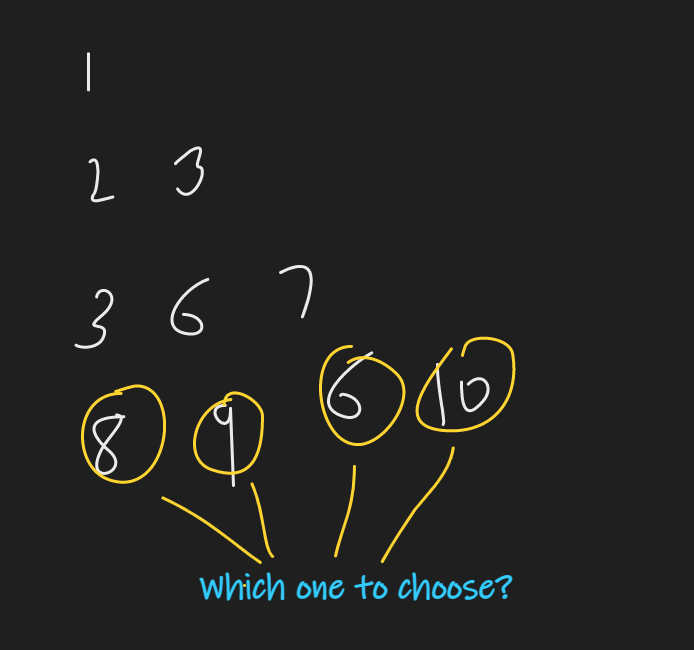 1
2 3
3 6 7
8 9 6 10
Which one to choose?